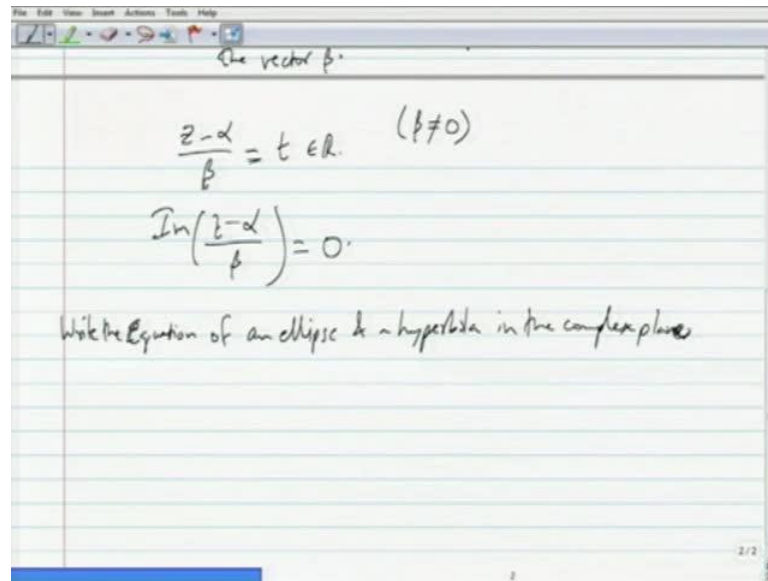 File Edit View Insert Actions Tools Help
The vector β.
(z-α)/β = t ∈ R. (β≠0)
Im((z-α)/β) = 0.
Write the Equation of an ellipse & a hyperbola in the complex plane
2/2
2